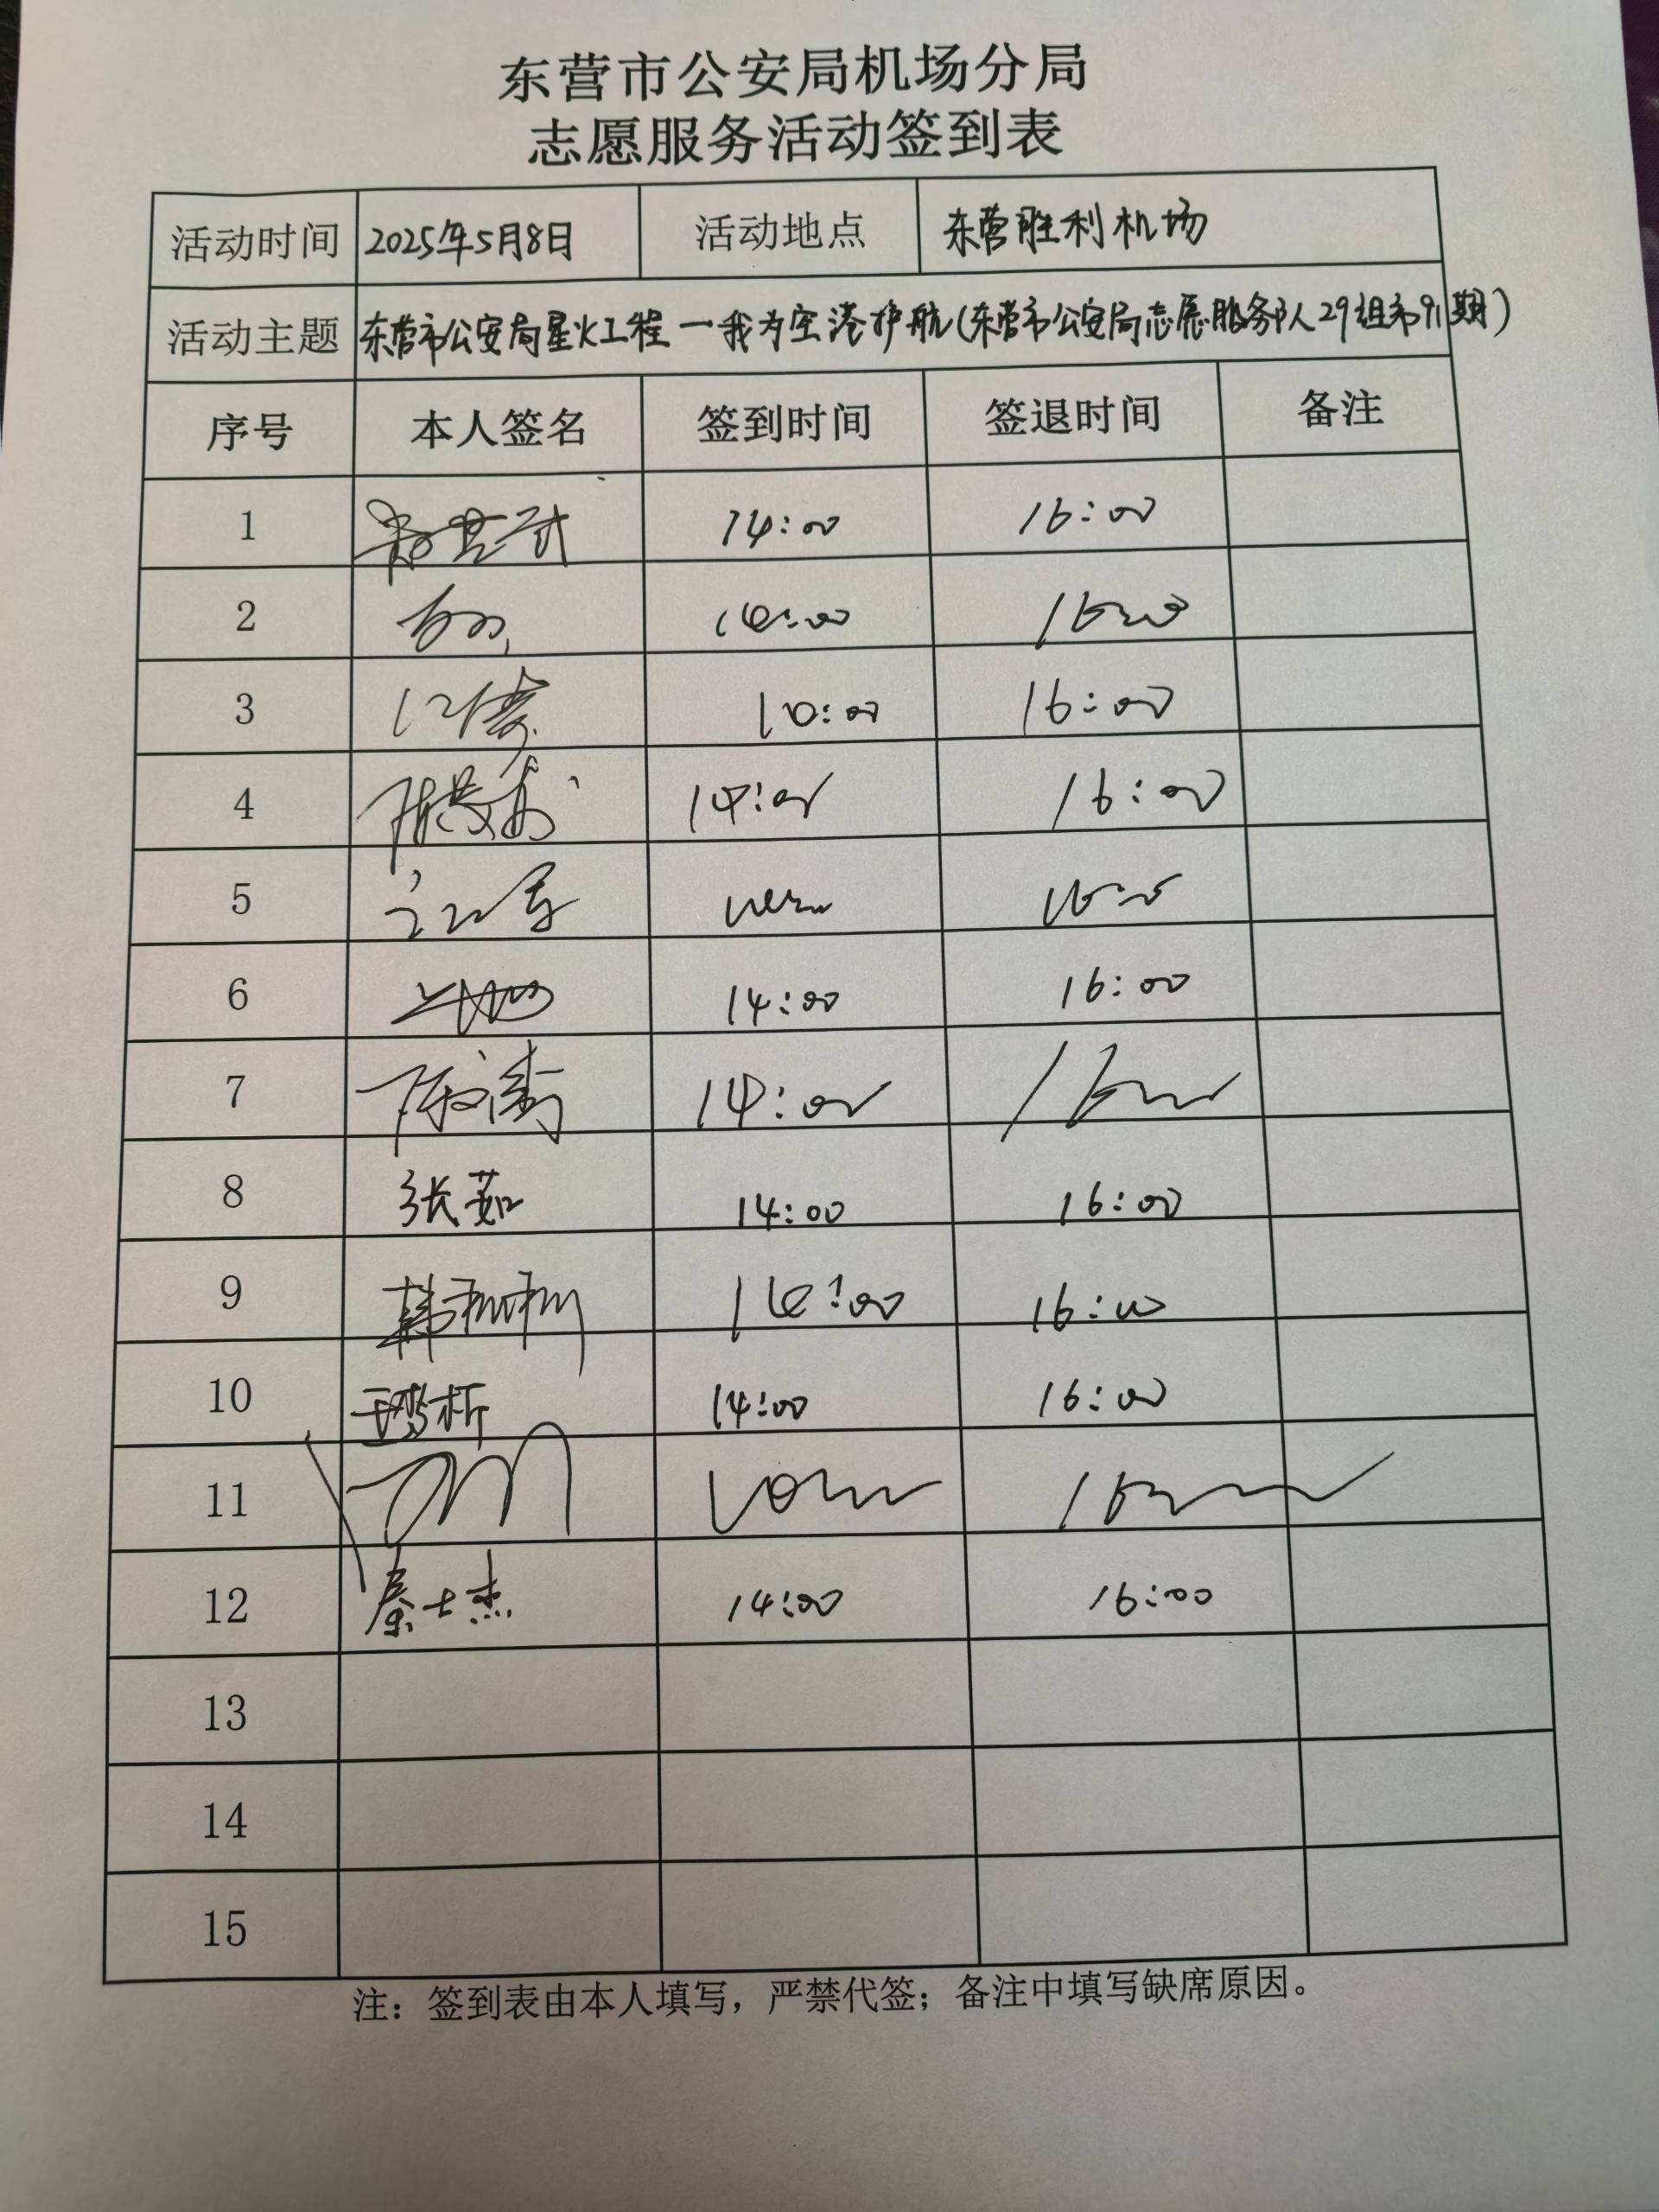 东营市公安局机场分局
志愿服务活动签到表
活动时间 2025年5月8日 活动地点 东营胜利机场
活动主题 东营市公安局星火工程一我为空港护航(东营市公安局志愿服务队29组第91期)
序号 本人签名 签到时间 签退时间 备注
1 14:00 16:00
2 14:00 16:00
3 16:00
4 14:00 16:00
5
6 14:00 16:00
7 14:00 16:00
8 张茹 14:00 16:00
9 韩珊珊 14:00 16:00
10 王梦析 14:00 16:00
11
12 秦士杰 14:00 16:00
13
14
15
注：签到表由本人填写，严禁代签；备注中填写缺席原因。